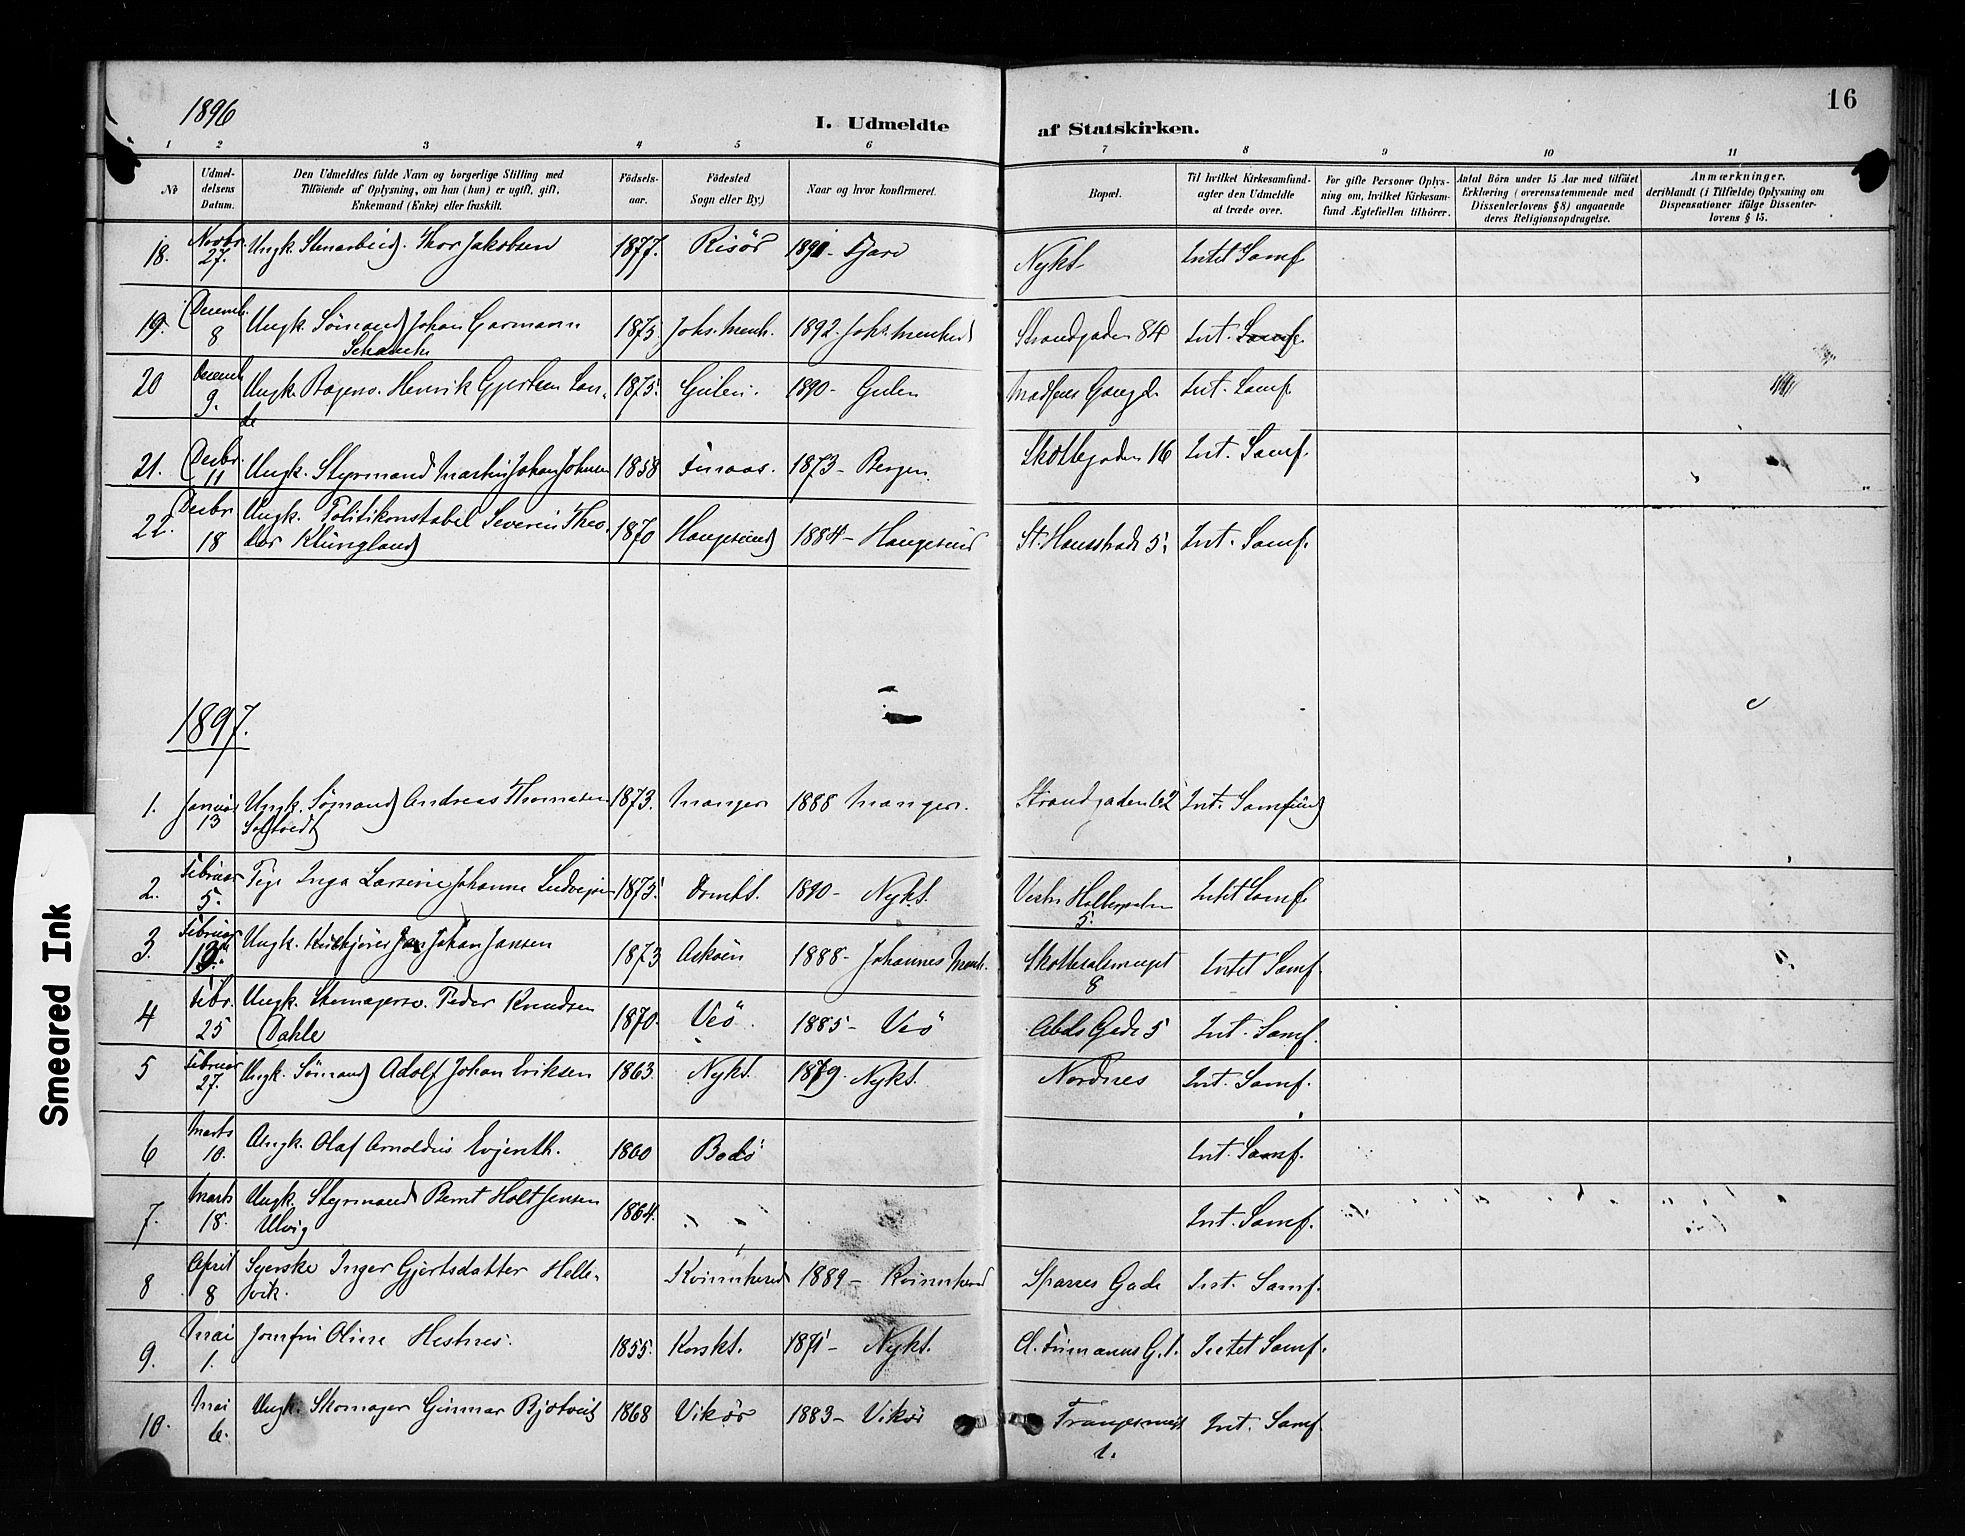 1896
16
I. Udmeldte af Statskirken.
1 2 3 4 5 6 7 8 9 10 11
No
Udmel-
delsens
Datum.
Den Udmeldtes fulde Navn og borgerlige Stilling med
Tilföiende af Oplysning, om han (hun) er ugift, gift,
Enkemand (Enke) eller fraskilt.
Födsels-
aar.
Födested
Sogn eller By.)
Naar og hvor konfirmeret.
Bopæl.
Til hvilket Kirkesamfund-
agter den Udmeldte
at træde over.
For gifte Personer Oplys-
ning om, hvilket Kirkesam-
fund Ægtefællen tilhörer.
Antal Börn under 15 Aar med tilföiet
Erklæring (overensstemmende med
Dissenterlovens § 8) angaaende
deres Religionsopdragelse.
Anmærkninger,
deriblandt (i Tilfælde) Oplysning om
Dispensationer ifölge Dissenter-
lovens § 15.
18. Novbr. 27. Ungk. Stenarbeid. Thor Jakobsen 1877. Risör 1891 - Nykt. Intet Samf.
19. Decemb. 8 Ungk. Sömand Johan Garmann 1875 Johs. Menh. 1892. Johs. Menhed Strandgaden 84 Int. Samf.
20 Decemb. 9. Ungk. Bagersv. Henrik Gjertsen Lan- 1875. Gulen. 1890 - Gulen Int. Samf.
de
21. Decbr. 11 Ungk. Styrmand Martin Johan Johnsen 1858 Finaas. 1873 - Bergen. Skottegaden 16 Int. Samf.
22. Decbr 18 Ungk. Politikonstabel Severin Theo-
dor Klungland 1870 Haugesund 1884 - Haugesund St. Hansstræde 5. Int. Samf.
1897.
1. Januar 13 Ungk. Sömand Andreas Thomasen 1873. Manger 1888 Manger. Strandgaden 62 Int. Samfund
2. Februar 5. Pige Inga Larsine Johanne Ludvigsen 1875. Domkt. 1890 - Nykt. Intet Samf.
5.
3. Februar Ungk. Jan Johan Jansen 1873 Asköen 1888 - Johannes Menh. Intet Samf.
8
4 Febr. 25 Ungk. Skomagersv. Peder Knudsen
Dahle 1870. Veö 1885 - Veö Gade 5 Int. Samf.
5 Februar 27. Ungk. Sömand Adolf Johan Eriksen 1863. Nykt. 1879. Nykt. Nordnes Int. Samf.
6 Marts 10. Ungk. Olaf Arnoldus Evjenth. 1860 Bodö Int. Samf.
7. Marts 18. Ungk. Styrmand Bernt Holt Jensen
Ulvig 1864. " " Int. Samf.
8 April 8 Syerske Inger Gjertsdatter Helle-
vik. Kvinnherred 1889 - Kvinnherred Sparres Gade Int. Samf.
9. Mai 1. Jomfru Oline Hestnes. 1855. Korskt. 1871 - Nykt. Intet Samf.
10. Mai 6. Ungk. Skomager Gunnar Bjotveit 1868 Vikör 1883 - Vikör Int. Samf.
1.
Smeared Ink